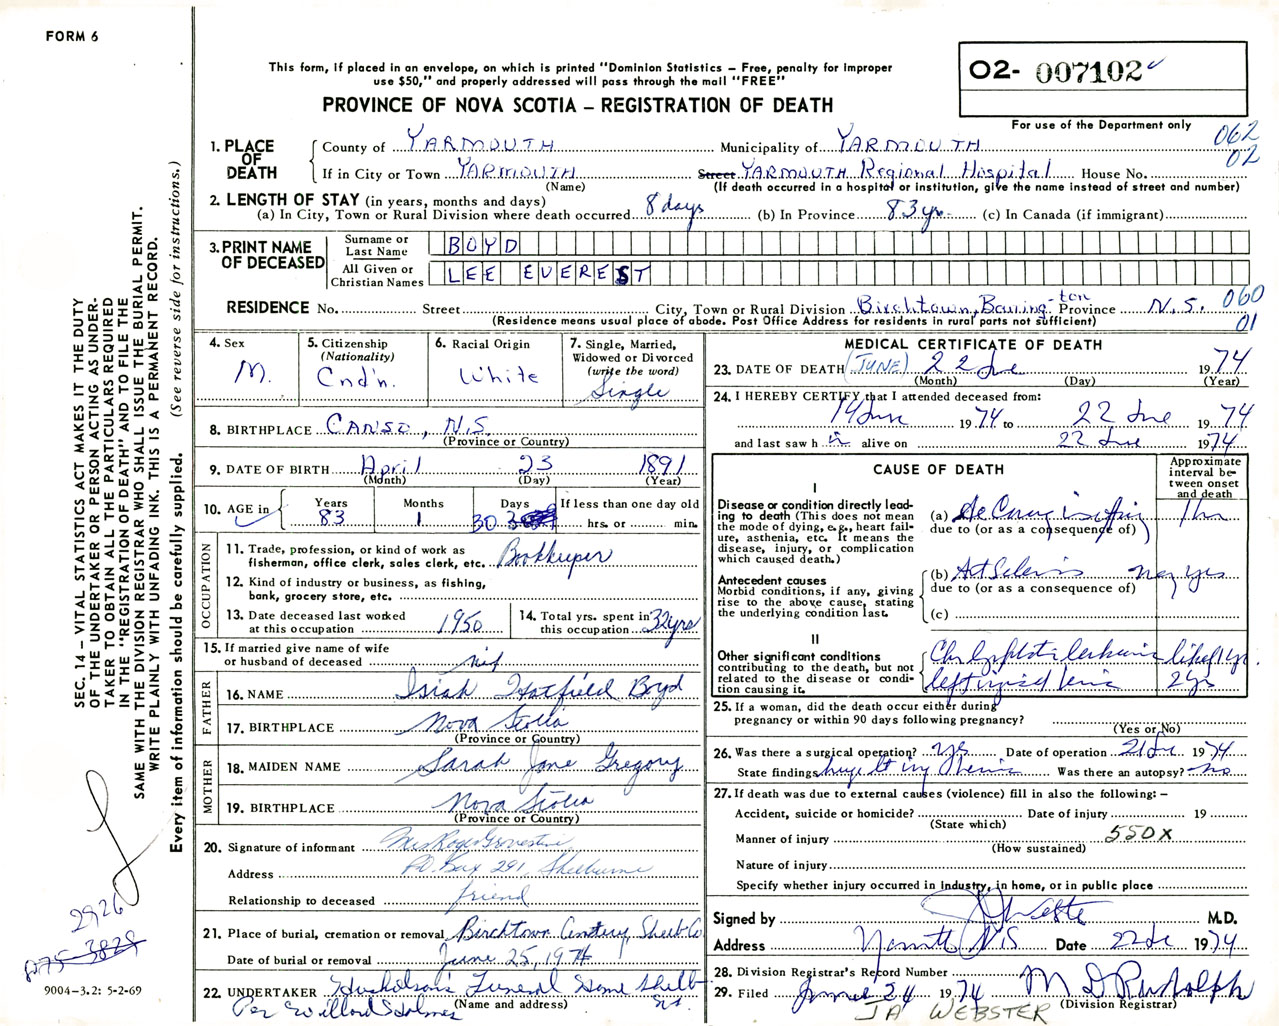 FORM 6
This form, if placed in an envelope, on which is printed "Dominion Statistics – Free, penalty for improper
use $50," and properly addressed will pass through the mail "FREE"
PROVINCE OF NOVA SCOTIA – REGISTRATION OF DEATH
02- 007102
For use of the Department only
062
02
1. PLACE OF DEATH County of YARMOUTH Municipality of YARMOUTH
If in City or Town YARMOUTH Street YARMOUTH Regional Hospital House No.
(Name) (If death occurred in a hospital or institution, give the name instead of street and number)
2. LENGTH OF STAY (in years, months and days)
(a) In City, Town or Rural Division where death occurred 8 days (b) In Province 83 yrs (c) In Canada (if immigrant)
3. PRINT NAME OF DECEASED
Surname or Last Name BOYD
All Given or Christian Names LEE EVEREST
RESIDENCE No. Street City, Town or Rural Division Birchtown, Barrington Province N.S. 060
01
(Residence means usual place of abode. Post Office Address for residents in rural parts not sufficient)
4. Sex M.
5. Citizenship (Nationality) Cnd'n.
6. Racial Origin White
7. Single, Married, Widowed or Divorced (write the word) Single
8. BIRTHPLACE CANSO, N.S.
(Province or Country)
9. DATE OF BIRTH April 23 1891
(Month) (Day) (Year)
10. AGE in Years 83 Months 1 Days 30 If less than one day old hrs. or min.
OCCUPATION
11. Trade, profession, or kind of work as
fisherman, office clerk, sales clerk, etc. Bookkeeper
12. Kind of industry or business, as fishing,
bank, grocery store, etc.
13. Date deceased last worked
at this occupation 1950
14. Total yrs. spent in
this occupation 32 yrs
15. If married give name of wife
or husband of deceased
FATHER
16. NAME Isiah Hatfield Boyd
17. BIRTHPLACE Nova Scotia
(Province or Country)
MOTHER
18. MAIDEN NAME Sarah Jane Gregory
19. BIRTHPLACE Nova Scotia
(Province or Country)
20. Signature of informant Mrs Roger
Address P.O. Box 291, Shelburne
Relationship to deceased friend
21. Place of burial, cremation or removal Birchtown Cemetery, Shelb. Co
Date of burial or removal June 25, 1974
22. UNDERTAKER Funeral Home Shelb
N.S.
(Name and address)
Per Willard Holmes
MEDICAL CERTIFICATE OF DEATH
23. DATE OF DEATH (JUNE) 22 Jne 1974
(Month) (Day) (Year)
24. I HEREBY CERTIFY that I attended deceased from:
14 Jun 1974 to 22 Jne 1974
and last saw h im alive on 22 Jne 1974
CAUSE OF DEATH
Approximate interval between onset and death
I
Disease or condition directly leading to death (This does not mean the mode of dying, e.g., heart failure, asthenia, etc. It means the disease, injury, or complication which caused death.)
(a) 1 hr
due to (or as a consequence of)
Antecedent causes
Morbid conditions, if any, giving rise to the above cause, stating the underlying condition last.
(b) many yrs
due to (or as a consequence of)
(c)
II
Other significant conditions
contributing to the death, but not related to the disease or condition causing it.
left inguinal hernia 2 yrs
25. If a woman, did the death occur either during
pregnancy or within 90 days following pregnancy?
(Yes or No)
26. Was there a surgical operation? yes Date of operation 21 Jne 1974
State findings huge lt ing hernia Was there an autopsy? no
27. If death was due to external causes (violence) fill in also the following: –
Accident, suicide or homicide? Date of injury 19
(State which)
Manner of injury 550X
(How sustained)
Nature of injury
Specify whether injury occurred in industry, in home, or in public place
Signed by M.D.
Address Yarmouth NS Date 22 Jne 1974
28. Division Registrar's Record Number
29. Filed June 24 1974 M D Rudolph
(Division Registrar)
JA WEBSTER
SEC. 14 – VITAL STATISTICS ACT MAKES IT THE DUTY
OF THE UNDERTAKER OR PERSON ACTING AS UNDER-
TAKER TO OBTAIN ALL THE PARTICULARS REQUIRED
IN THE "REGISTRATION OF DEATH" AND TO FILE THE
SAME WITH THE DIVISION REGISTRAR WHO SHALL ISSUE THE BURIAL PERMIT.
WRITE PLAINLY WITH UNFADING INK. THIS IS A PERMANENT RECORD.
Every item of information should be carefully supplied. (See reverse side for instructions.)
2926
075-3829
9004-3.2: 5-2-69